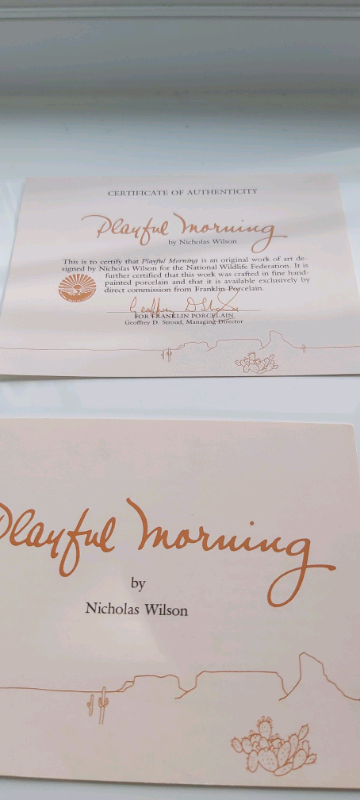 CERTIFICATE OF AUTHENTICITY
Playful Morning
by Nicholas Wilson
This is to certify that Playful Morning is an original work of art de-
signed by Nicholas Wilson for the National Wildlife Federation. It is
further certified that this work was crafted in fine hand-
painted porcelain and that it is available exclusively by
direct commission from Franklin Porcelain.
FOR FRANKLIN PORCELAIN
Geoffrey D. Stroud, Managing Director
Playful Morning
by
Nicholas Wilson